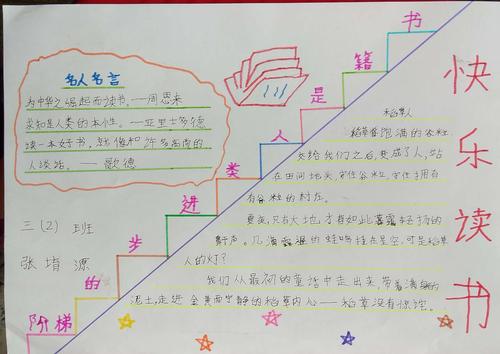 快乐读书
书籍是人类进步的阶梯
名人名言
为中华之崛起而读书。——周恩来
求知是人类的本性。——亚里士多德
读一本好书，就像和许多高尚的
人谈话。——歌德
三（2）班
张堉源
稻草人
稻草食饱满的谷粒
交给我们之后，变成了人，站
在田间地头，守住谷粒，守住拥有
有谷粒的村庄。
夏夜，只有大地才有如此
鼾声。几滴
的蛙鸣挂在星空，可是稻草
人的灯？
我们从最初的童话中走出来，带着满身的
泥土，走进金黄而宁静的稻草内心——稻草没有惊诧。